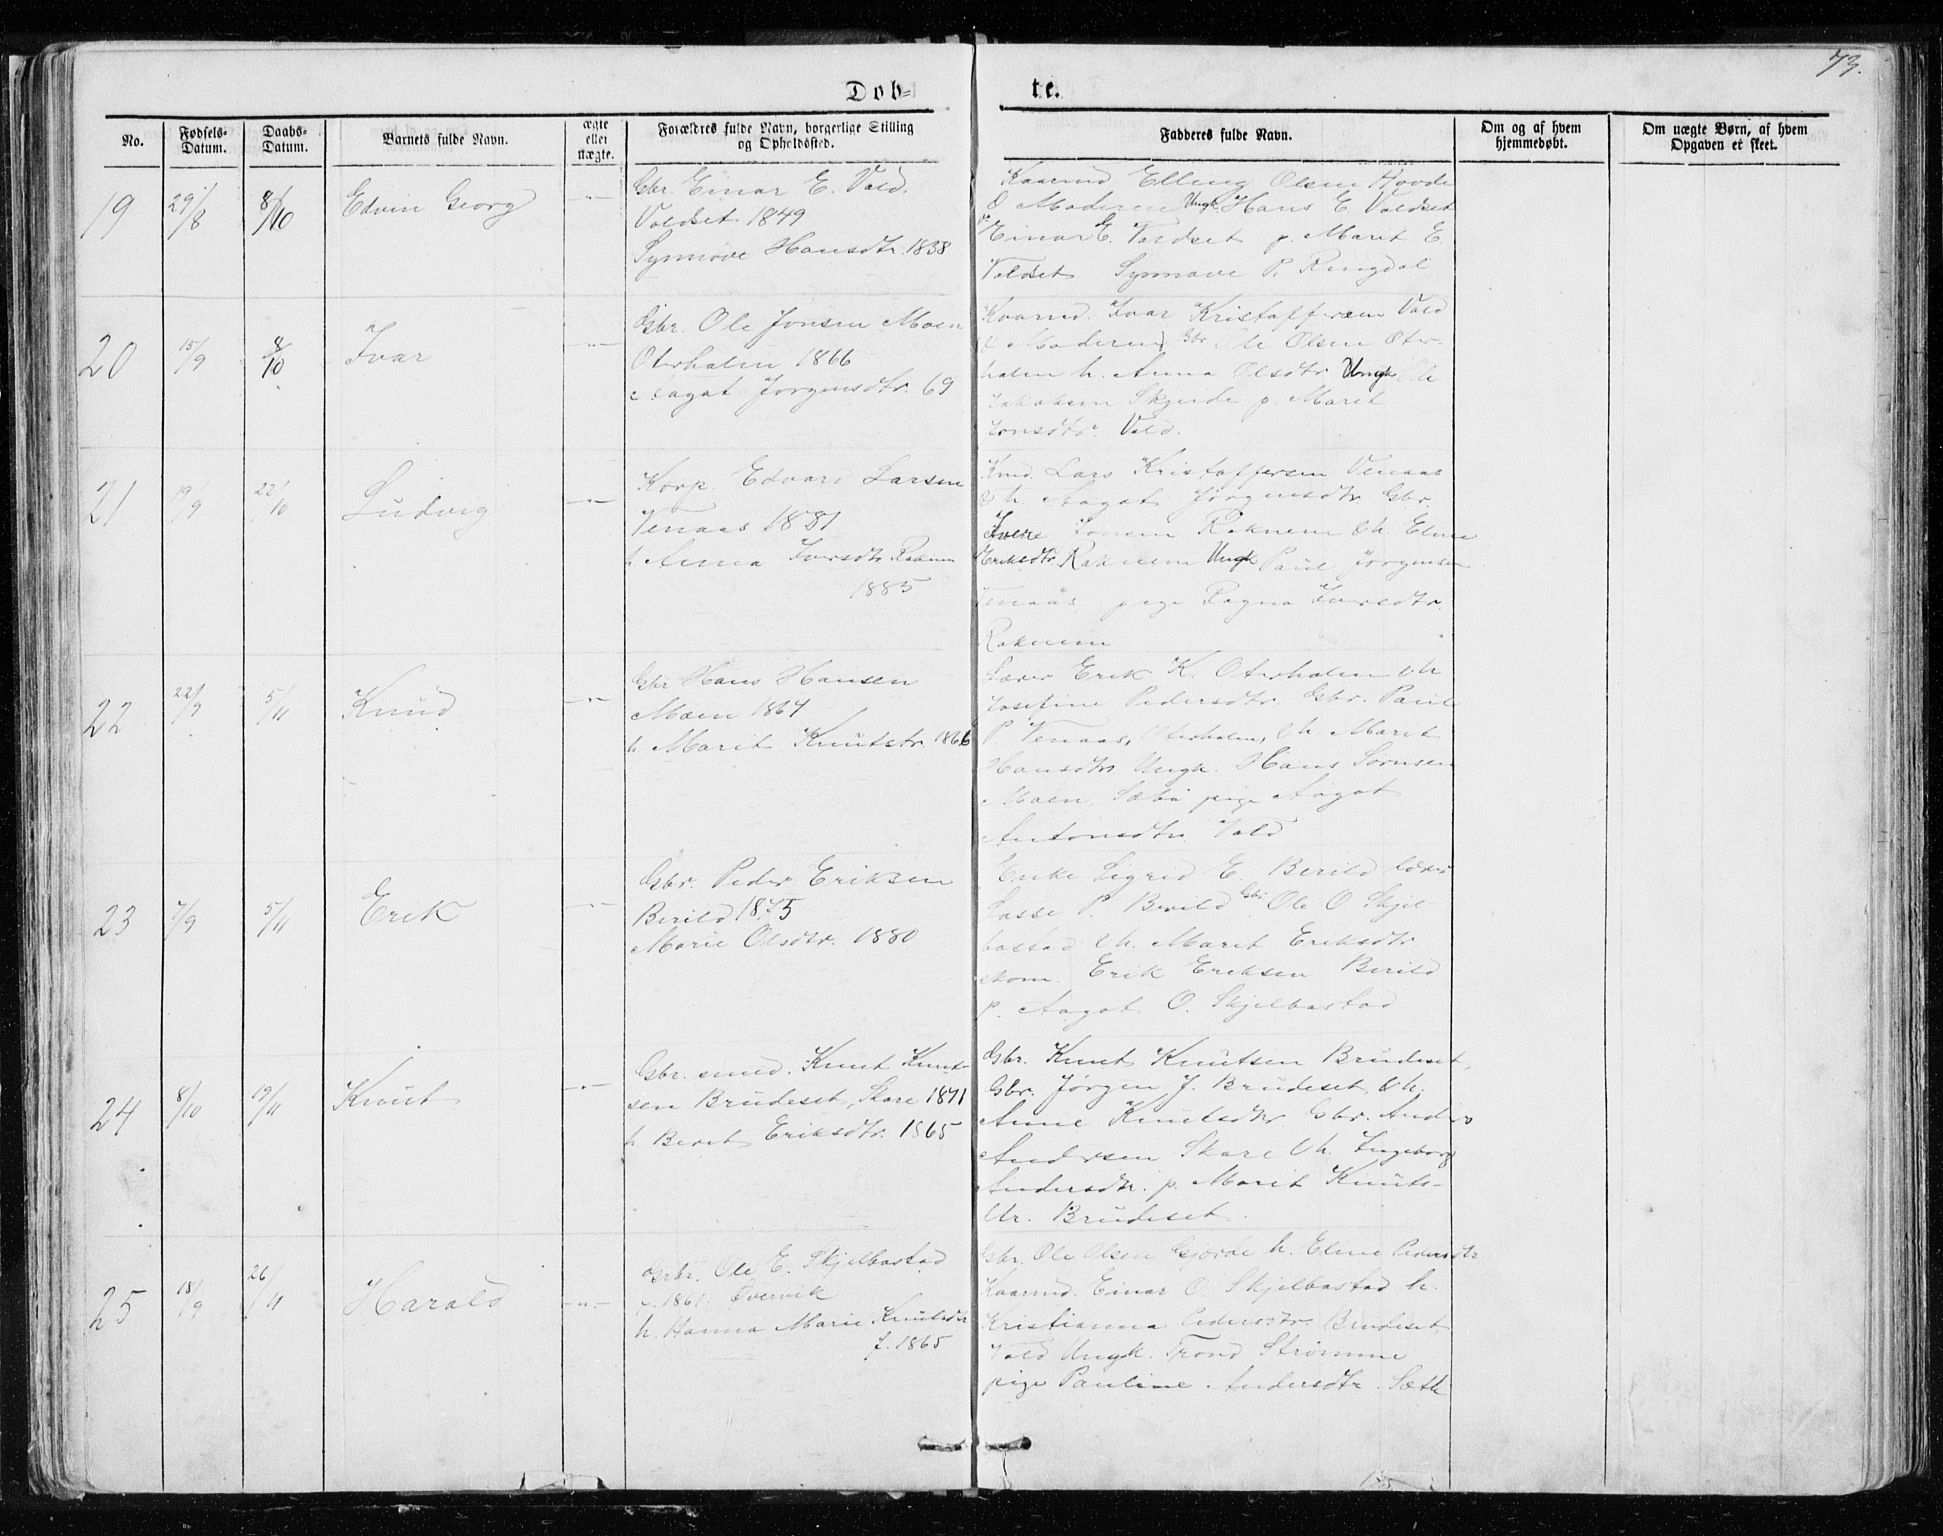 73.
Døb-
te.
No.
Fødsels-
Datum.
Daabs-
Datum.
Barnets fulde Navn.
ægte
eller
uægte.
Forældres fulde Navn, borgerlige Stilling
og Opholdssted.
Fadderes fulde Navn.
Om og af hvem
hjemmedøbt.
Om uægte Børn, af hvem
Opgaven er skeet.
19
29/8
8/10
Edvin Georg
—"—
Gbr. Einar E. Vold.
Voldset 1849
Synnøve Hansdtr. 1838
Kaarmd Elling Olsen Hovde
& Moderen Ungk Hans E Voldset
Einar E. Voldset p. Marit E.
Voldset Synnøve P. Ringdal
20
15/9
8/10
Ivar
—"—
Gbr. Ole Jonsen Moen
Oterholen 1866
Aagot Jørgensdtr. 69
Kaarmd. Ivar Kristoffersen Vold
& Moderen Gbr Ole Olsen Oter-
holen h. Anna Olsdtr Ungk Ole
Jakobsen Skjerde p. Marit
Jonsdtr. Vold.
21
19/9
22/10
Ludvig
—"—
Korp. Edvard Larsen
Venaas 1881
h Anna Iversdtr Raknem
1885
Kmd. Lars Kristoffersen Venaas
& h. Aagot Jørgensdtr Gbr.
Iver Jonsen Raknem & h. Eline
Eriksdtr. Raknem Ungk Paul Jørgensen
Venaas pige Ragna Iversdtr.
Raknem
22
22/9
5/11
Knud
—"—
Gbr Hans Hansen
Moen 1864
h. Marit Knutsdtr. 1866
Lærer Erik K. Oterholen & h
Josefine Pedersdtr. Gbr. Paul
P. Venaas, Oterholen, & h. Marit
Hansdtr Ungk. Hans Sørnsen
Moen, Sæbø pige Aagot
Antonsdtr. Vold
23
7/9
5/11
Erik
—"—
Gbr. Peder Eriksen
Berild 1875
Marie Olsdtr. 1880
Enke Sigrid E. Berild Lærer
Lasse P. Berild Gbr. Ole O. Skjel-
bostad & h. Marit Eriksdtr
skom. Erik Eriksen Berild
p. Aagot O. Skjelbostad
24
8/10
19/11
Knut
—"—
Gbr. smed. Knut Knut-
sen Brudeset, Skare 1871
h Beret Eriksdtr. 1865
Gbr. Knut Knutsen Brudeset,
Gbr. Jørgen J. Brudeset, & h.
Anne Knutsdtr. Gbr. Anders
Andersen Skare & h. Ingeborg
Andersdtr. p. Marit Knuts-
dtr. Brudeset.
25
18/9
26/11
Harald
—"—
Gbr. Ole E. Skjelbostad
f. 1861. Overvik
h. Hanna Marie Knutsdtr
f. 1865
Gbr. Ole Olsen Gjærde h. Eline Pedersdtr
Kaarmd. Einar O. Skjelbostad h.
Kristianna Pedersdtr. Brudeset,
Vold Ungk. Trond Strømme
pige Pauline Andersdtr. Sæth